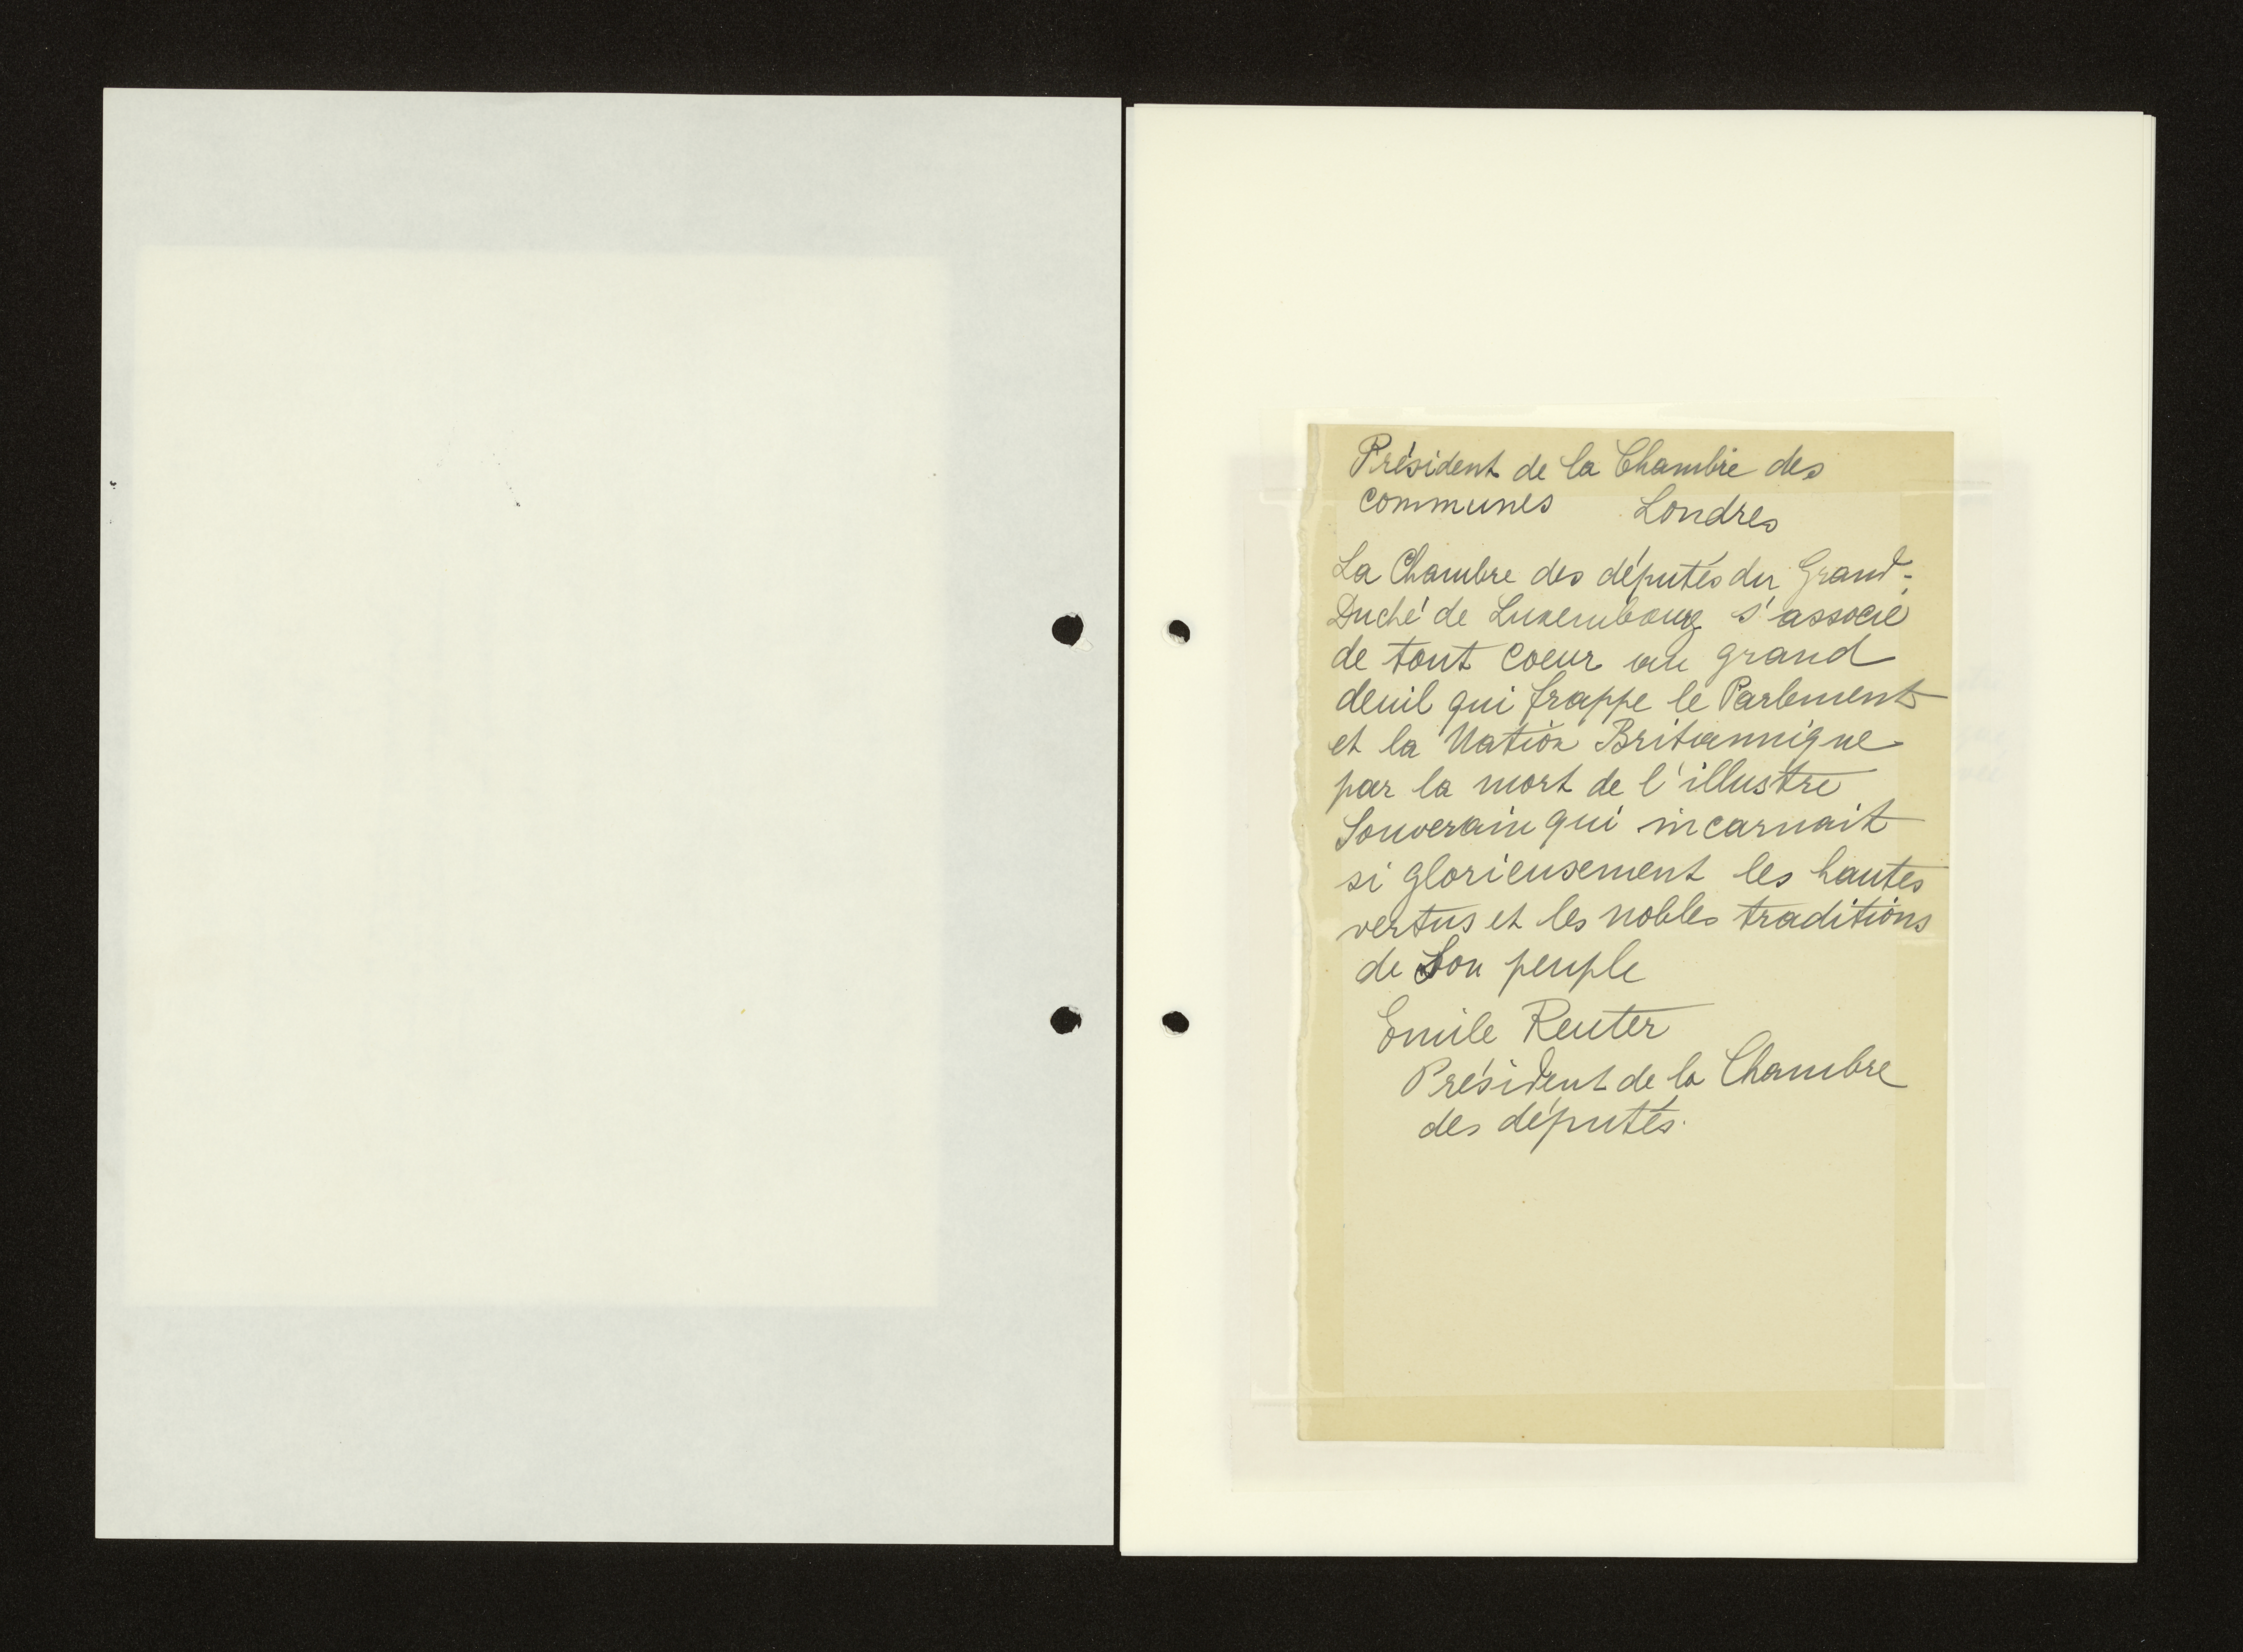 Président de la Chambre des
communes Londres
La Chambre des députés du Grand-
Duché de Luxembourg s'associe
de tout coeur au grand
deuil qui frappe le Parlement
et la Nation Britannique
par la mort de l'illustre
Souverain qui incarnait
si glorieusement les hautes
vertus et les nobles traditions
de Son peuple
Emile Reuter
Président de la Chambre
des députés.